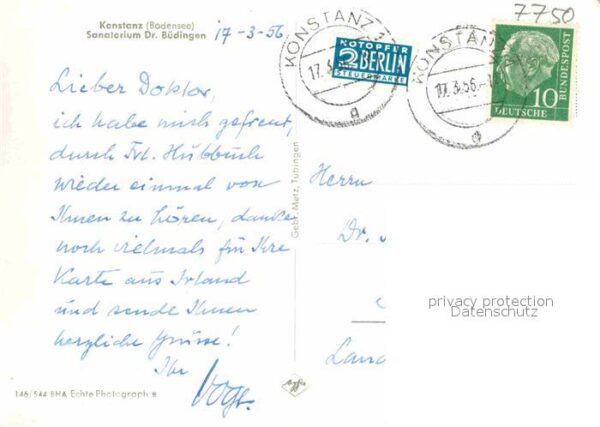 Konstanz (Bodensee)
Sanatorium Dr. Büdingen
17-3-56
7750
KONSTANZ 1
17.3.56
a
NOTOPFER
2 BERLIN
STEUERMARKE
KONSTANZ
17.3.56.
a
10
DEUTSCHE
BUNDESPOST
Lieber Doktor,
ich habe mich gefreut,
durch Frl. Hübbuch
wieder einmal von
Ihnen zu hören, danke
noch vielmals für Ihre
Karte aus Irland
und sende Ihnen
herzliche Grüsse!
Ihr
Vogt.
Gebr. Metz, Tübingen
Herrn
Dr.
Land
privacy protection
Datenschutz
146/544 BHA Echte Photographie